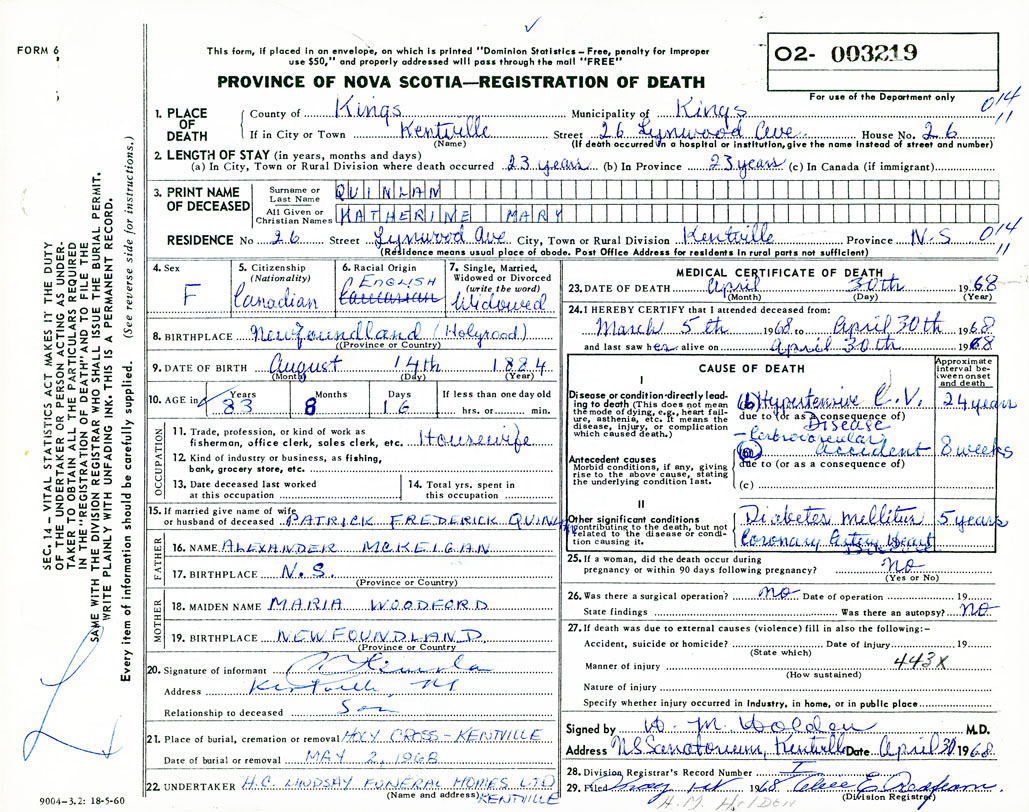 FORM 6
This form, if placed in an envelope, on which is printed "Dominion Statistics – Free, penalty for improper
use $50," and properly addressed will pass through the mail "FREE"
PROVINCE OF NOVA SCOTIA—REGISTRATION OF DEATH
02- 003219
For use of the Department only
014
11
1. PLACE OF DEATH
County of Kings Municipality of Kings
If in City or Town Kentville Street 26 Lynwood Ave House No. 26
(Name) (If death occurred in a hospital or institution, give the name instead of street and number)
2. LENGTH OF STAY (in years, months and days)
(a) In City, Town or Rural Division where death occurred 23 years (b) In Province 23 years (c) In Canada (if immigrant)
3. PRINT NAME OF DECEASED
Surname or Last Name QUINLAN
All Given or Christian Names KATHERINE MARY
RESIDENCE No 26 Street Lynwood Ave City, Town or Rural Division Kentville Province N.S 014
11
(Residence means usual place of abode. Post Office Address for residents in rural parts not sufficient)
4. Sex
F
5. Citizenship
(Nationality)
Canadian
6. Racial Origin
ENGLISH
7. Single, Married,
Widowed or Divorced
(write the word)
Widowed
8. BIRTHPLACE Newfoundland (Holyrood)
(Province or Country)
9. DATE OF BIRTH August 14th 1884
(Month) (Day) (Year)
10. AGE in
Years Months Days If less than one day old
83 8 16 hrs. or min.
OCCUPATION
11. Trade, profession, or kind of work as
fisherman, office clerk, sales clerk, etc. Housewife
12. Kind of industry or business, as fishing,
bank, grocery store, etc.
13. Date deceased last worked
at this occupation
14. Total yrs. spent in
this occupation
15. If married give name of wife
or husband of deceased PATRICK FREDERICK QUINLAN
FATHER
16. NAME ALEXANDER MCKEIGAN
17. BIRTHPLACE N.S.
(Province or Country)
MOTHER
18. MAIDEN NAME MARIA WOODFORD
19. BIRTHPLACE NEWFOUNDLAND
(Province or Country)
20. Signature of informant
Address Kentville, NS
Relationship to deceased Son
21. Place of burial, cremation or removal HOLY CROSS - KENTVILLE
Date of burial or removal MAY 2, 1968
22. UNDERTAKER H.C. LINDSAY FUNERAL HOMES LTD
(Name and address) KENTVILLE
9004-3.2: 18-5-60
MEDICAL CERTIFICATE OF DEATH
23. DATE OF DEATH April 30th 1968
(Month) (Day) (Year)
24. I HEREBY CERTIFY that I attended deceased from:
March 5th 1968 to April 30th 1968
and last saw her alive on April 30th 1968
CAUSE OF DEATH
Approximate
interval be-
tween onset
and death
I
Disease or condition directly lead-
ing to death (This does not mean
the mode of dying, e.g., heart fail-
ure, asthenia, etc. It means the
disease, injury, or complication
which caused death.)
(b) Hypertensive C.V. 24 years
due to (or as a consequence of)
Disease
Cerebrovascular
accident 8 weeks
Antecedent causes
Morbid conditions, if any, giving
rise to the above cause, stating
the underlying condition last.
due to (or as a consequence of)
(c)
II
Other significant conditions
contributing to the death, but not
related to the disease or condi-
tion causing it.
Diabetes mellitus 5 years
Coronary artery Heart
Disease
25. If a woman, did the death occur during
pregnancy or within 90 days following pregnancy? No
(Yes or No)
26. Was there a surgical operation? no Date of operation 19
State findings Was there an autopsy? no
27. If death was due to external causes (violence) fill in also the following:–
Accident, suicide or homicide? Date of injury 19
(State which)
443X
Manner of injury
(How sustained)
Nature of injury
Specify whether injury occurred in Industry, in home, or in public place
Signed by H. M. Holden M.D.
Address NS Sanatorium, Kentville Date April 30 1968
28. Division Registrar's Record Number
29. Filed May 1st 1968
(Division Registrar)
H. M. HOLDEN
SEC. 14 – VITAL STATISTICS ACT MAKES IT THE DUTY
OF THE UNDERTAKER OR PERSON ACTING AS UNDER-
TAKER TO OBTAIN ALL THE PARTICULARS REQUIRED
IN THE "REGISTRATION OF DEATH" AND TO FILE THE
SAME WITH THE DIVISION REGISTRAR WHO SHALL ISSUE THE BURIAL PERMIT.
WRITE PLAINLY WITH UNFADING INK. THIS IS A PERMANENT RECORD.
Every item of information should be carefully supplied. (See reverse side for instructions.)